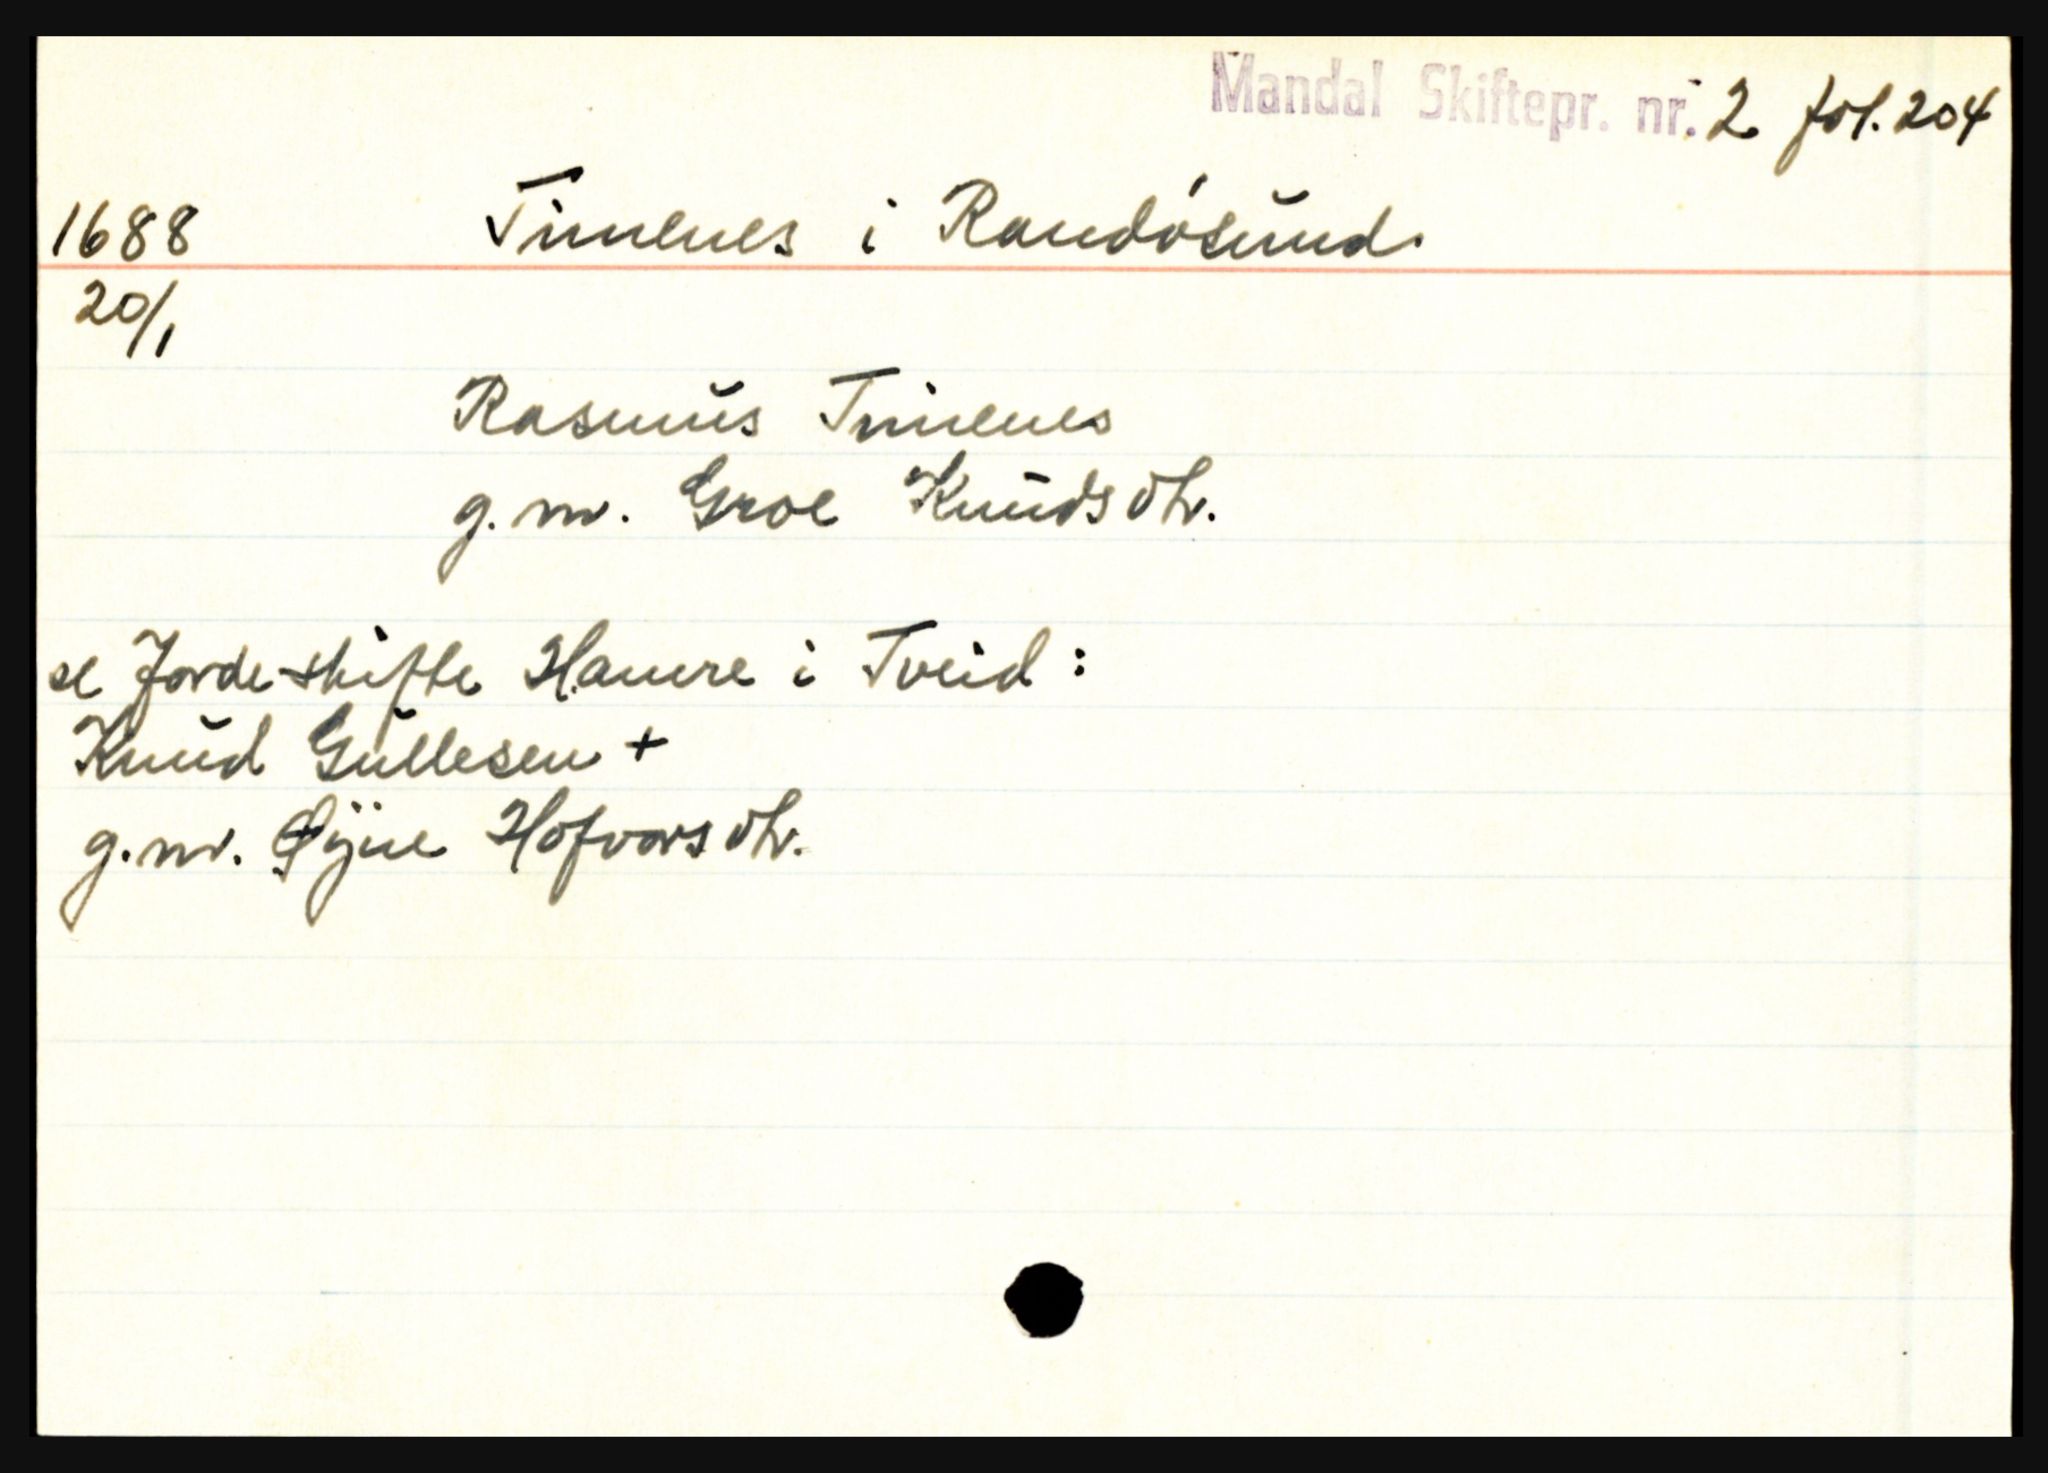 Mandal Skiftepr. nr. 2 fol. 204
1688 Timenes i Randøsund.
20/1
Rasmus Timenes
g.m. Groe Knudsdtr.
se Jordeskifte Hamre i Tveid:
Knud Gullesen +
g.m. Øÿne Hofvorsdtr.